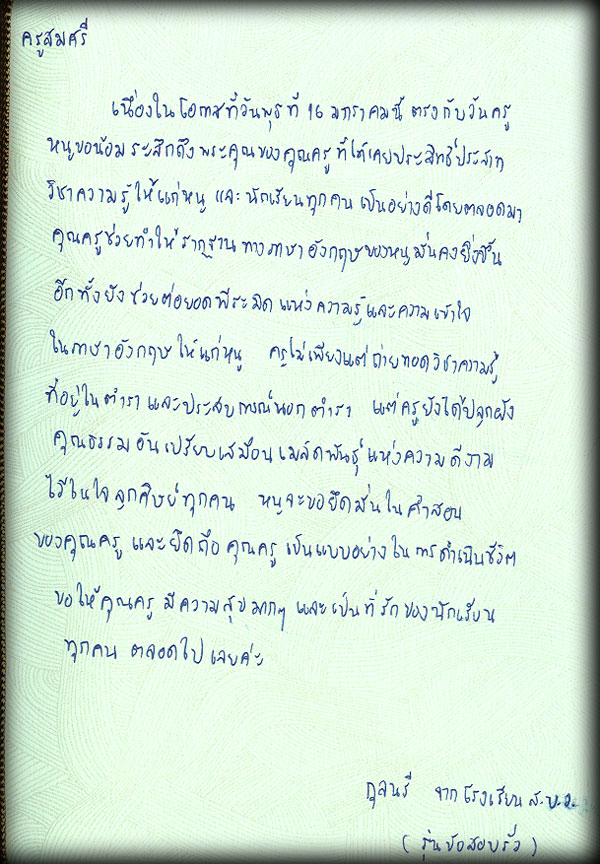 ครูสมศรี
เนื่องในโอกาสที่วันพุธที่ 16 มกราคมนี้ ตรงกับวันครู
หนูขอน้อมระลึกถึงพระคุณของคุณครูที่ได้เคยประสิทธิ์ประสาท
วิชาความรู้ให้แก่หนู และนักเรียนทุกคน เป็นอย่างดีโดยตลอดมา
คุณครูช่วยทำให้รากฐานทางภาษาอังกฤษของหนูมั่นคงยิ่งขึ้น
อีกทั้งยังช่วยต่อยอดพีระมิดแห่งความรู้และความเข้าใจ
ในภาษาอังกฤษให้แก่หนู ครูไม่เพียงแต่ถ่ายทอดวิชาความรู้
ที่อยู่ในตำราและประสบการณ์นอกตำรา แต่ครูยังได้ปลูกฝัง
คุณธรรมอันเปรียบเสมือนเมล็ดพันธุ์แห่งความดีงาม
ไว้ในใจลูกศิษย์ทุกคน หนูจะขอยึดมั่นในคำสอน
ของคุณครู และยึดถือคุณครูเป็นแบบอย่างในการดำเนินชีวิต
ขอให้คุณครูมีความสุขมากๆ และเป็นที่รักของนักเรียน
ทุกคน ตลอดไปเลยค่ะ
กุลนรี จากโรงเรียน ส.บ.ว.
(รุ่นข้อสอบรั่ว)